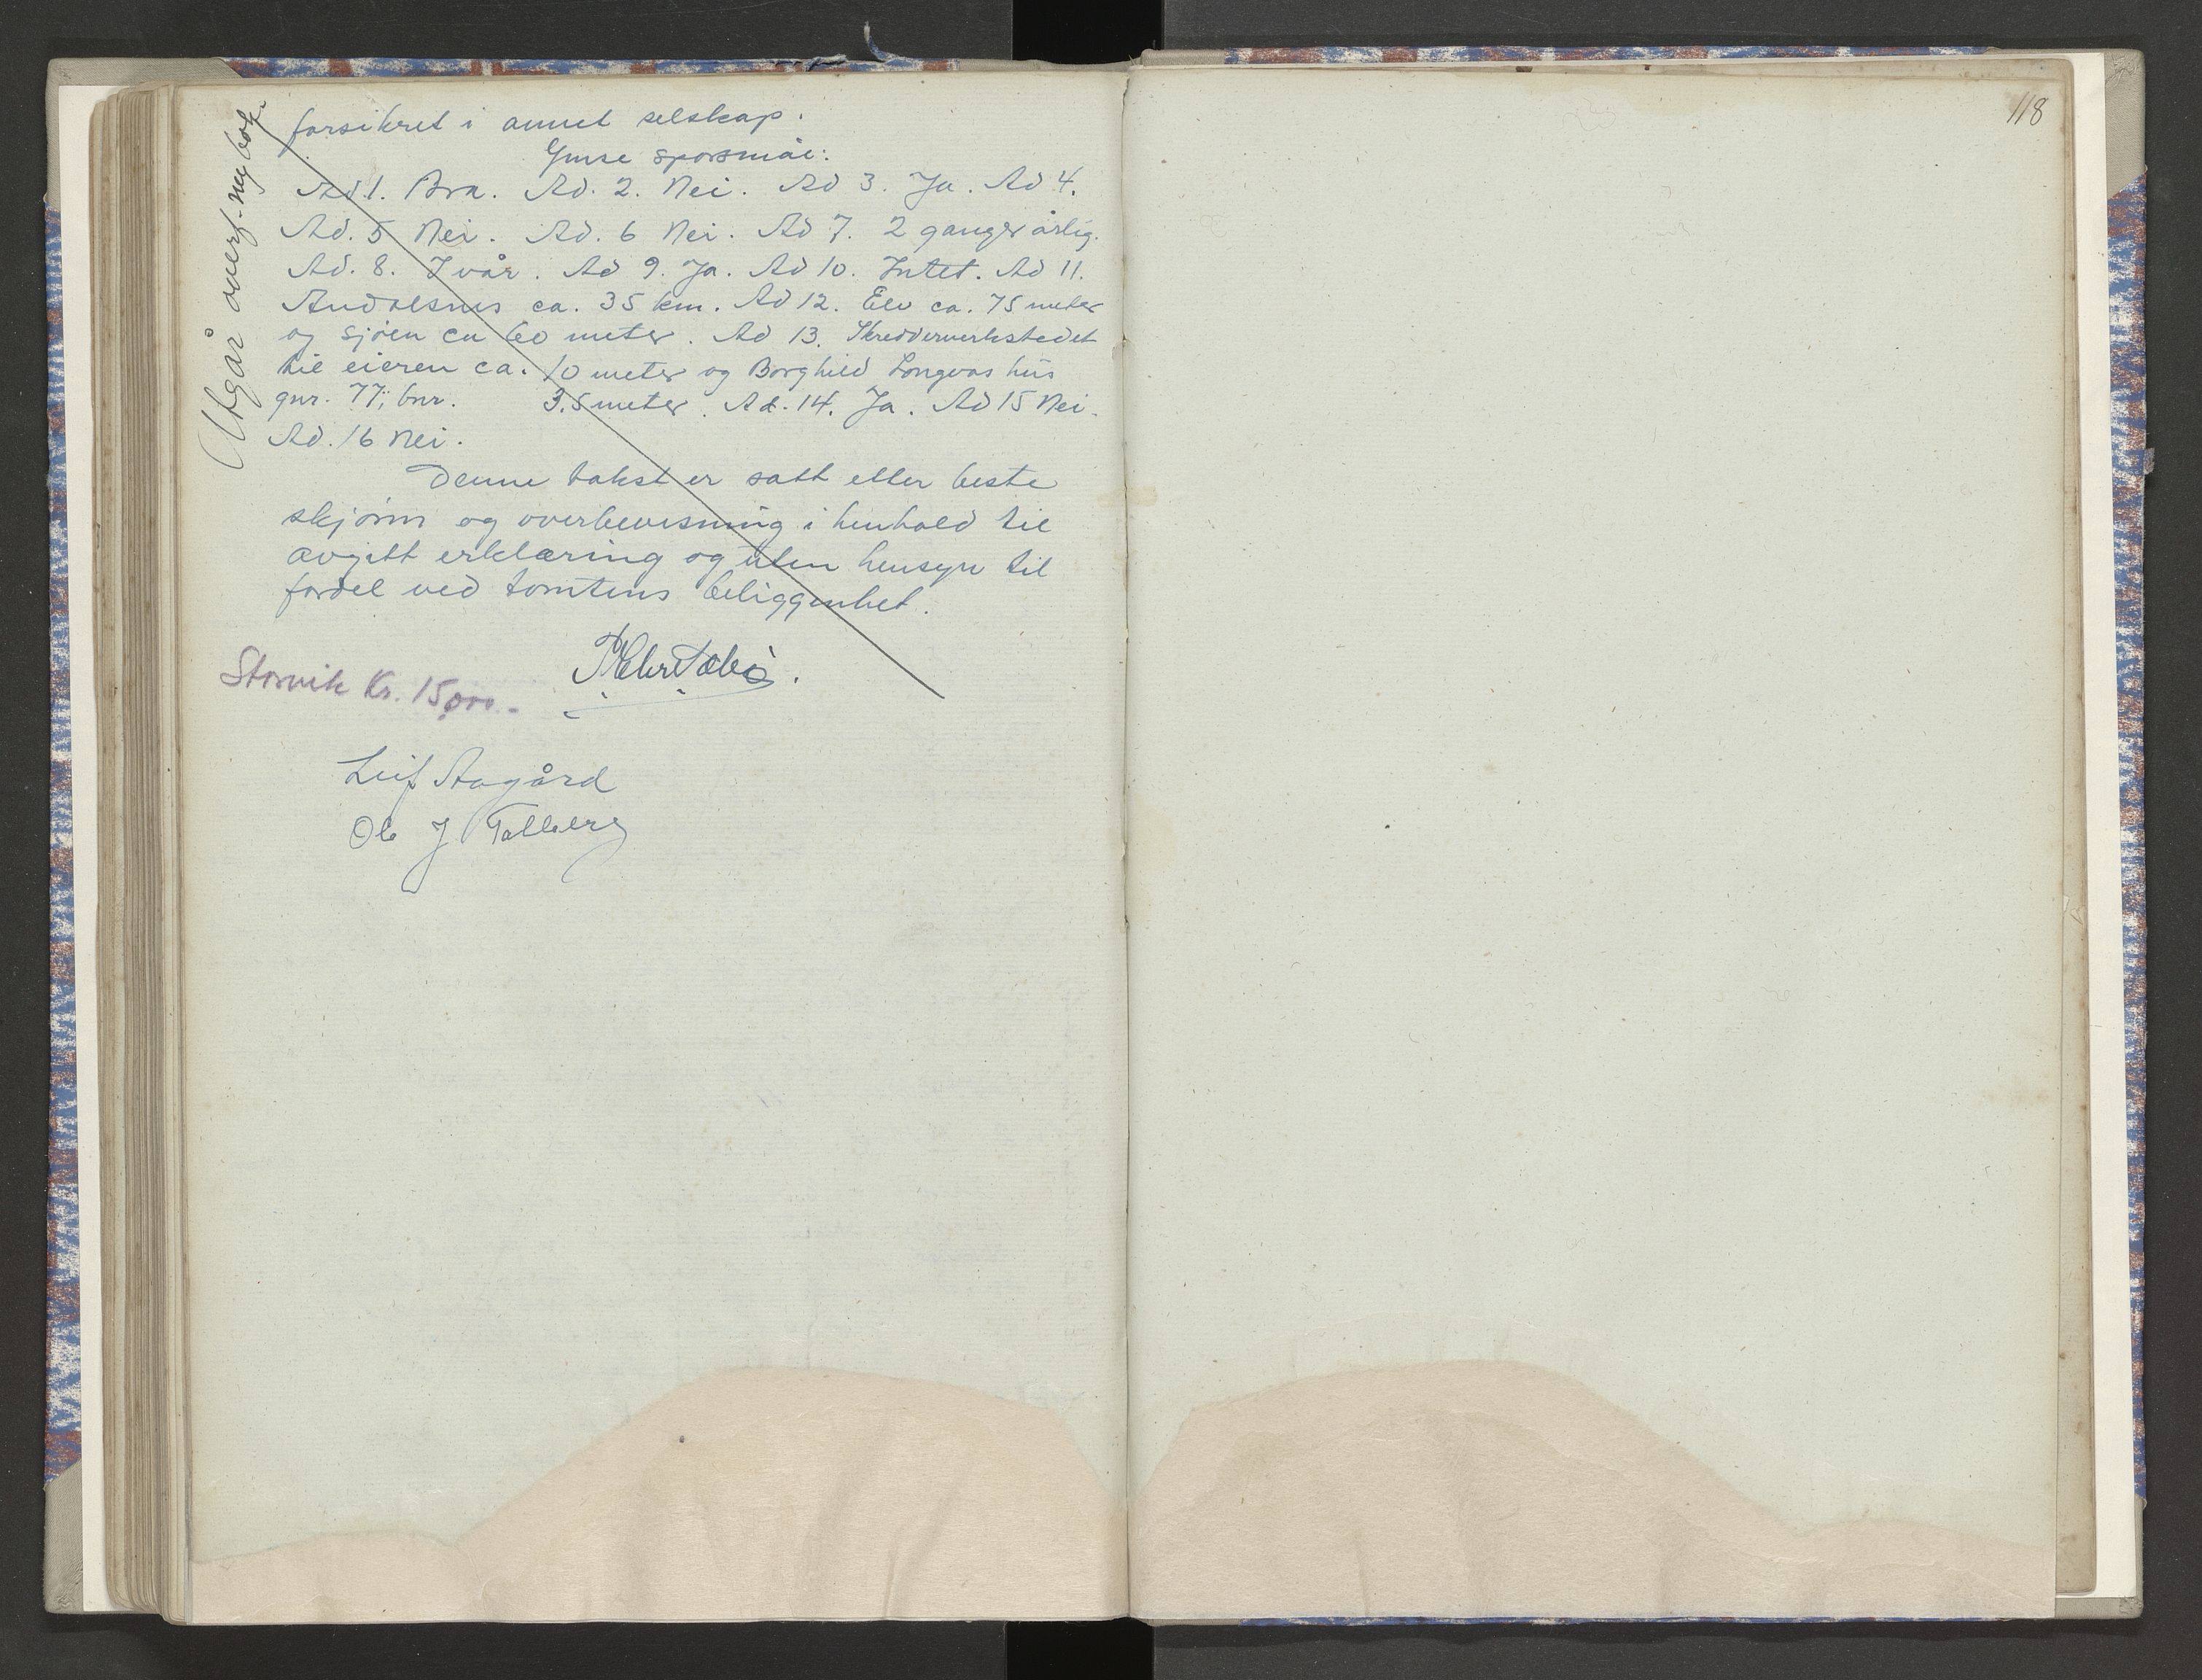 118
Utgår overf. ny bok
forsikret i annet selskap.
Ymse spørsmål:
Ad 1. Bra. Ad. 2. Nei. Ad 3. Ja. Ad 4.
Ad. 5 Nei. Ad. 6 Nei. Ad 7. 2 ganger årlig.
Ad. 8. I vår. Ad 9. Ja. Ad 10. Intet. Ad 11.
Åndalsnes ca. 35 km. Ad 12. Elv ca. 75 meter
og sjøen ca 60 meter. Ad 13. Skredderverkstedet
til eieren ca. 10 meter og Borghild Longvas hus
gnr. 77, bnr. 3.5 meter. Ad. 14. Ja. Ad 15 Nei.
Ad. 16 Nei.
Denne takst er satt etter beste
skjønn og overbevisning i henhold til
avgitt erklæring og uten hensyn til
fordel ved tomtens beliggenhet.
Storvik Kr. 15000.-
Leif Aagård
Ole J Talberg